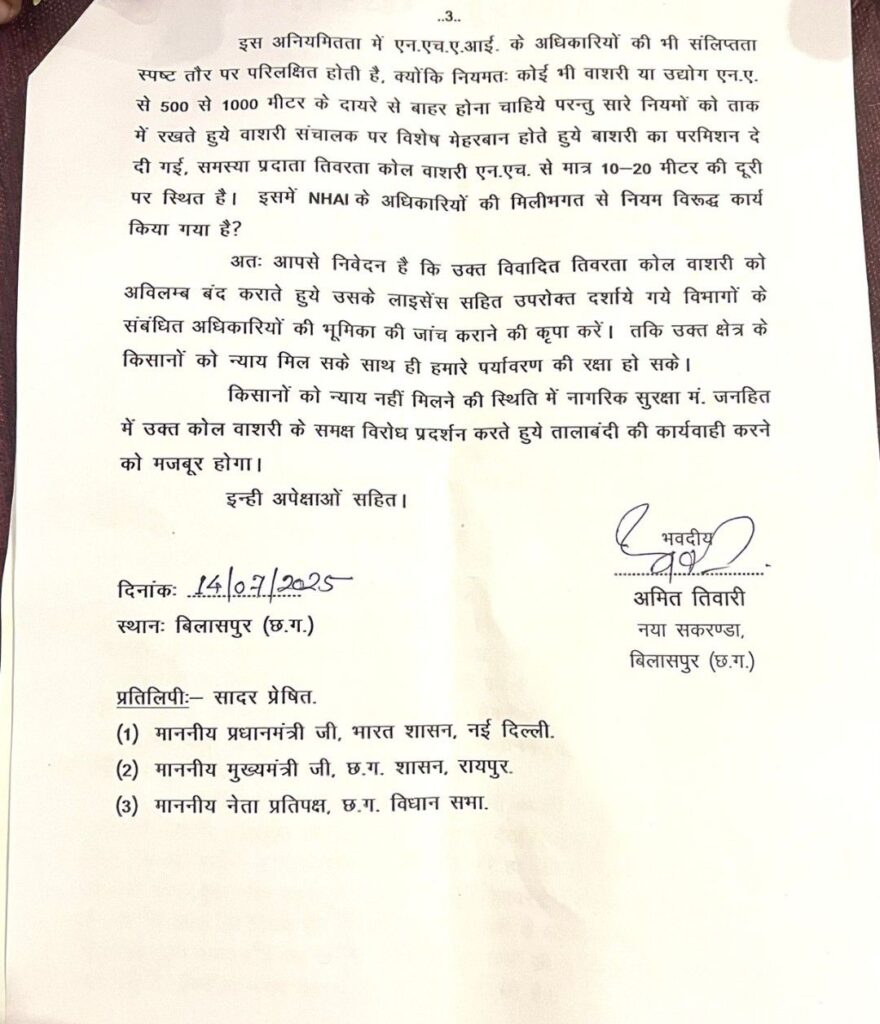 ..3..
इस अनियमितता में एन.एच.ए.आई. के अधिकारियों की भी संलिप्तता
स्पष्ट तौर पर परिलक्षित होती है, क्योंकि नियमतः कोई भी वाशरी या उद्योग एन.ए.
से 500 से 1000 मीटर के दायरे से बाहर होना चाहिये परन्तु सारे नियमों को ताक
में रखते हुये वाशरी संचालक पर विशेष मेहरबान होते हुये बाशरी का परमिशन दे
दी गई, समस्या प्रदाता तिवरता कोल वाशरी एन.एच. से मात्र 10–20 मीटर की दूरी
पर स्थित है। इसमें NHAI के अधिकारियों की मिलीभगत से नियम विरूद्ध कार्य
किया गया है?
अतः आपसे निवेदन है कि उक्त विवादित तिवरता कोल वाशरी को
अविलम्ब बंद कराते हुये उसके लाइसेंस सहित उपरोक्त दर्शाये गये विभागों के
संबंधित अधिकारियों की भूमिका की जांच कराने की कृपा करें। तकि उक्त क्षेत्र के
किसानों को न्याय मिल सके साथ ही हमारे पर्यावरण की रक्षा हो सके।
किसानों को न्याय नहीं मिलने की स्थिति में नागरिक सुरक्षा मं. जनहित
में उक्त कोल वाशरी के समक्ष विरोध प्रदर्शन करते हुये तालाबंदी की कार्यवाही करने
को मजबूर होगा।
इन्ही अपेक्षाओं सहित।
भवदीय
दिनांकः 14/07/2025
अमित तिवारी
स्थानः बिलासपुर (छ.ग.)
नया सकरण्डा,
बिलासपुर (छ.ग.)
प्रतिलिपीः– सादर प्रेषित.
(1) माननीय प्रधानमंत्री जी, भारत शासन, नई दिल्ली.
(2) माननीय मुख्यमंत्री जी, छ.ग. शासन, रायपुर.
(3) माननीय नेता प्रतिपक्ष, छ.ग. विधान सभा.